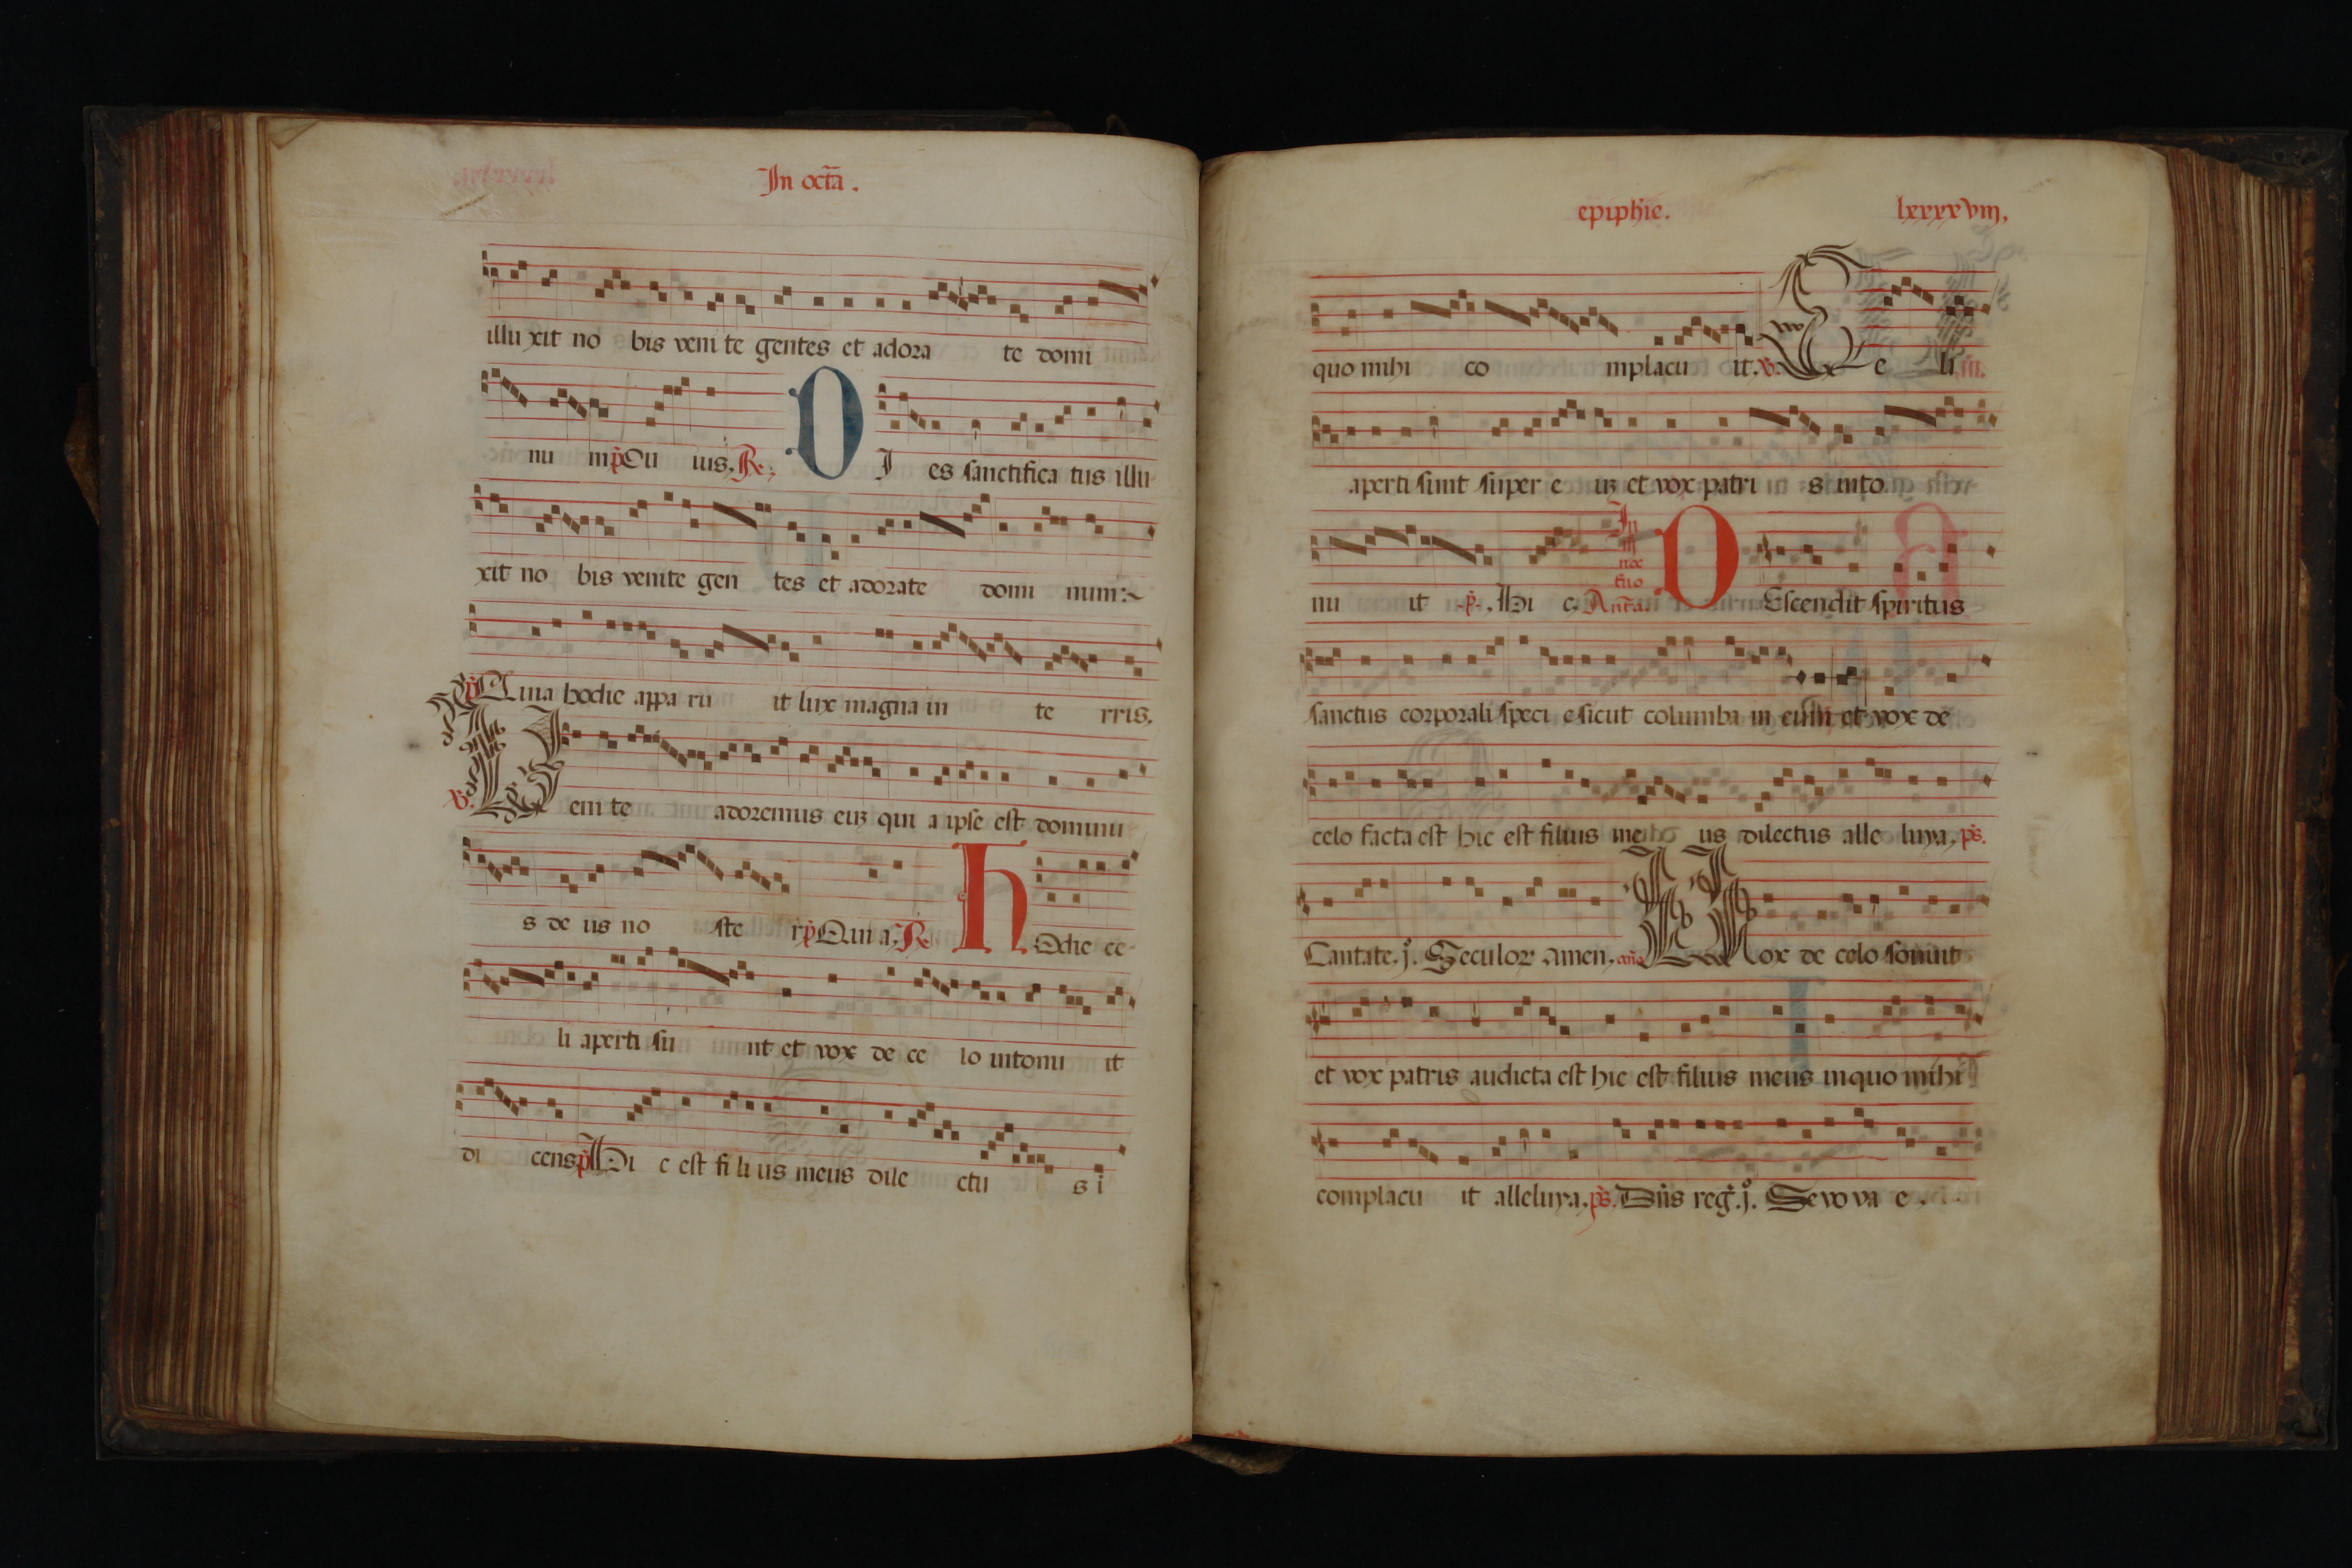 In octã.
illu xit no bis veni te gentes et adora te domi
nu m p̃ Qu ius. Re.; D I es sanctifica tus illu
xit no bis venite gen tes et adorate domi num:~
p̃ Quia hodie appa ru it lux magna in te rris.
v. V eni te adoremus eũ qui a ipse est dominu
s de us no ste r p̃ Qui a. Re. h Odie ce
li aperti su nt et vox de ce lo intonu it
di cens p̃ Hi c est fi li us meus dile ctu s i
epiphie. lxxxxviij.
quo mihi co mplacu it. v. C e li
aperti sunt super e uȝ et vox patri s into
nu it .p̃. Hi c. Antã. In iij noc tuo D Escendit spiritus
sanctus corporali speci e sicut columba in eum et vox de
celo facta est hic est filius me us dilectus alle luya. ps.
Cantate. j. Seculoꝝ amen. añ V ox de celo sonuit
et vox patris audicta est hic est filius meus inquo mihi
complacu it alleluya. ps. Dñs reg̃. j. Sevova e.